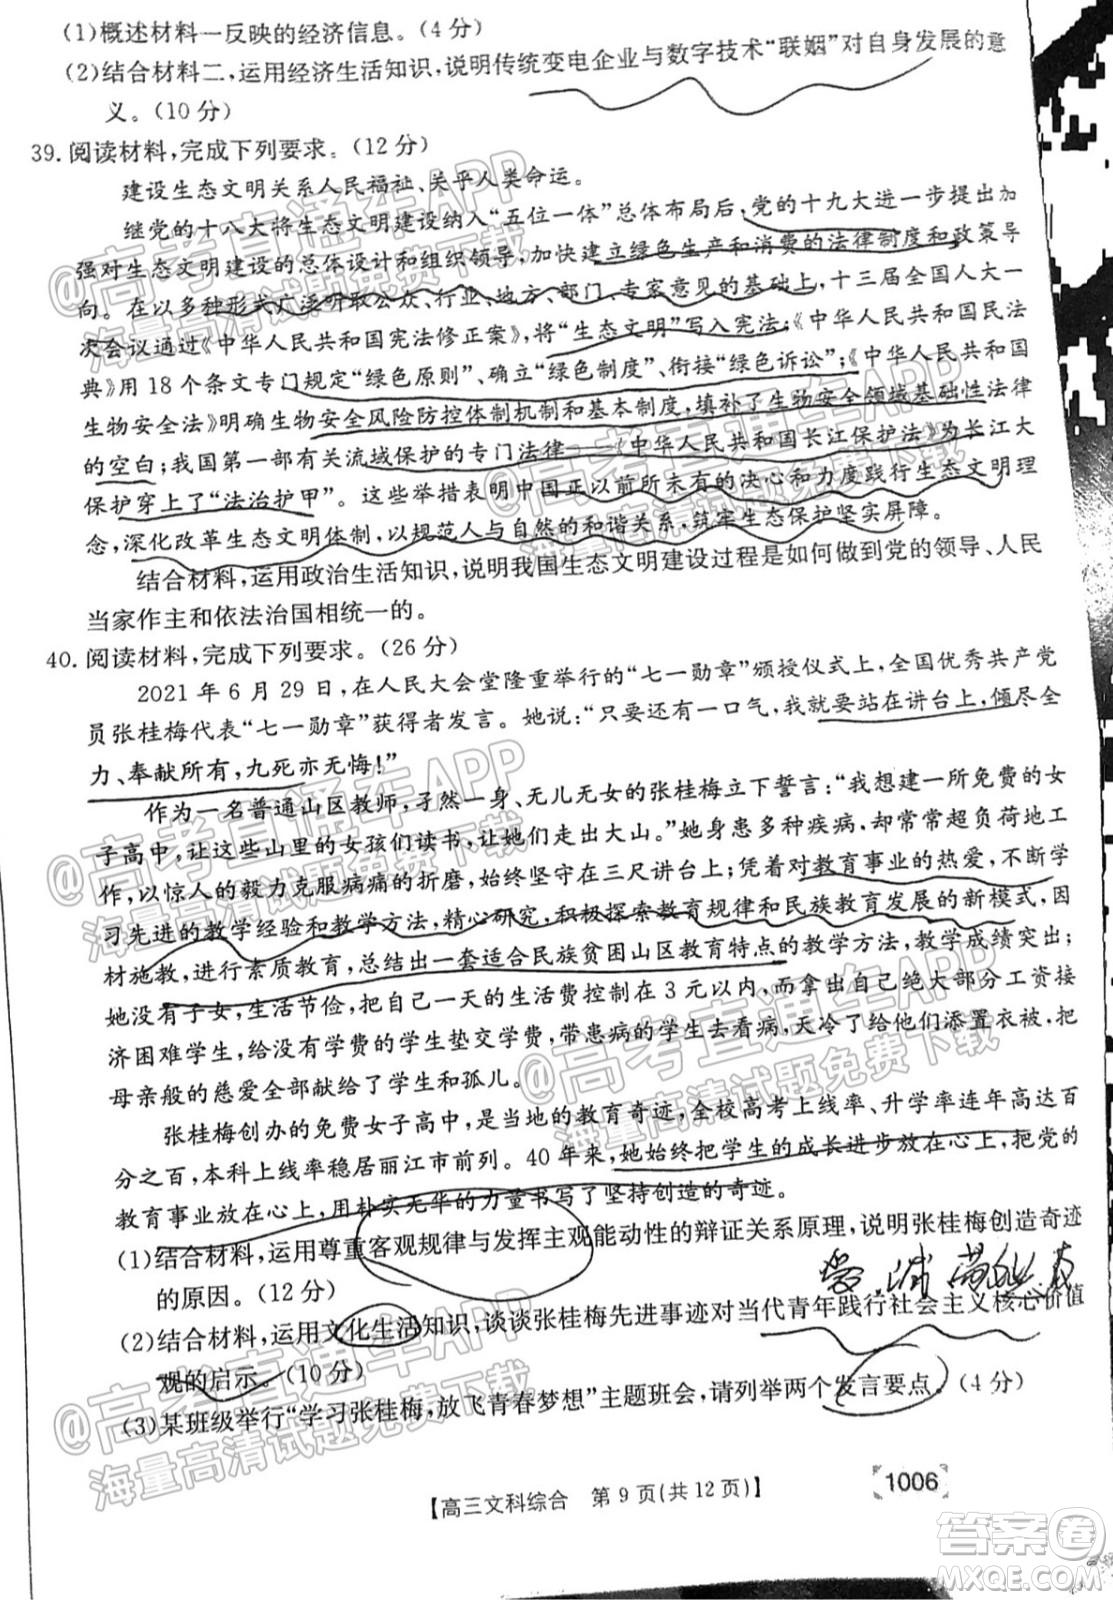 (1)概述材料一反映的经济信息。(4分)
(2)结合材料二,运用经济生活知识,说明传统变电企业与数字技术“联姻”对自身发展的意
义。(10分)
39.阅读材料,完成下列要求。(12分)
建设生态文明关系人民福祉、关乎人类命运。
继党的十八大将生态文明建设纳入“五位一体”总体布局后,党的十九大进一步提出加
强对生态文明建设的总体设计和组织领导,加快建立绿色生产和消费的法律制度和政策导
向。在以多种形式广泛听取公众、行业、地方、部门、专家意见的基础上,十三届全国人大一
次会议通过《中华人民共和国宪法修正案》,将“生态文明”写入宪法;《中华人民共和国民法
典》用18个条文专门规定“绿色原则”、确立“绿色制度”、衔接“绿色诉讼”;《中华人民共和国
生物安全法》明确生物安全风险防控体制机制和基本制度,填补了生物安全领域基础性法律
的空白;我国第一部有关流域保护的专门法律——《中华人民共和国长江保护法》为长江大
保护穿上了“法治护甲”。这些举措表明中国正以前所未有的决心和力度践行生态文明理
念,深化改革生态文明体制,以规范人与自然的和谐关系,筑牢生态保护坚实屏障。
结合材料,运用政治生活知识,说明我国生态文明建设过程是如何做到党的领导、人民
当家作主和依法治国相统一的。
40.阅读材料,完成下列要求。(26分)
2021年6月29日,在人民大会堂隆重举行的“七一勋章”颁授仪式上,全国优秀共产党
员张桂梅代表“七一勋章”获得者发言。她说:“只要还有一口气,我就要站在讲台上,倾尽全
力、奉献所有,九死亦无悔!”
作为一名普通山区教师,孑然一身、无儿无女的张桂梅立下誓言:“我想建一所免费的女
子高中,让这些山里的女孩们读书,让她们走出大山。”她身患多种疾病,却常常超负荷地工
作,以惊人的毅力克服病痛的折磨,始终坚守在三尺讲台上;凭着对教育事业的热爱,不断学
习先进的教学经验和教学方法,精心研究,积极探索教育规律和民族教育发展的新模式,因
材施教,进行素质教育,总结出一套适合民族贫困山区教育特点的教学方法,教学成绩突出;
她没有子女,生活节俭,把自己一天的生活费控制在3元以内,而拿出自己绝大部分工资接
济困难学生,给没有学费的学生垫交学费,带患病的学生去看病,天冷了给他们添置衣被,把
母亲般的慈爱全部献给了学生和孤儿。
张桂梅创办的免费女子高中,是当地的教育奇迹,全校高考上线率、升学率连年高达百
分之百,本科上线率稳居丽江市前列。40年来,她始终把学生的成长进步放在心上,把党的
教育事业放在心上,用朴实无华的力量书写了坚持创造的奇迹。
(1)结合材料,运用尊重客观规律与发挥主观能动性的辩证关系原理,说明张桂梅创造奇迹
的原因。(12分)
(2)结合材料,运用文化生活知识,谈谈张桂梅先进事迹对当代青年践行社会主义核心价值
观的启示。(10分)
(3)某班级举行“学习张桂梅,放飞青春梦想”主题班会,请列举两个发言要点。(4分)
【高三文科综合 第9页(共12页)】
1006
@高考直通车APP
海量高清试题免费下载
@高考直通车APP
海量高清试题免费下载
@高考直通车APP
海量高清试题免费下载
@高考直通车APP
海量高清试题免费下载
@高考直通车APP
海量高清试题免费下载
答案圈
MXQE.COM